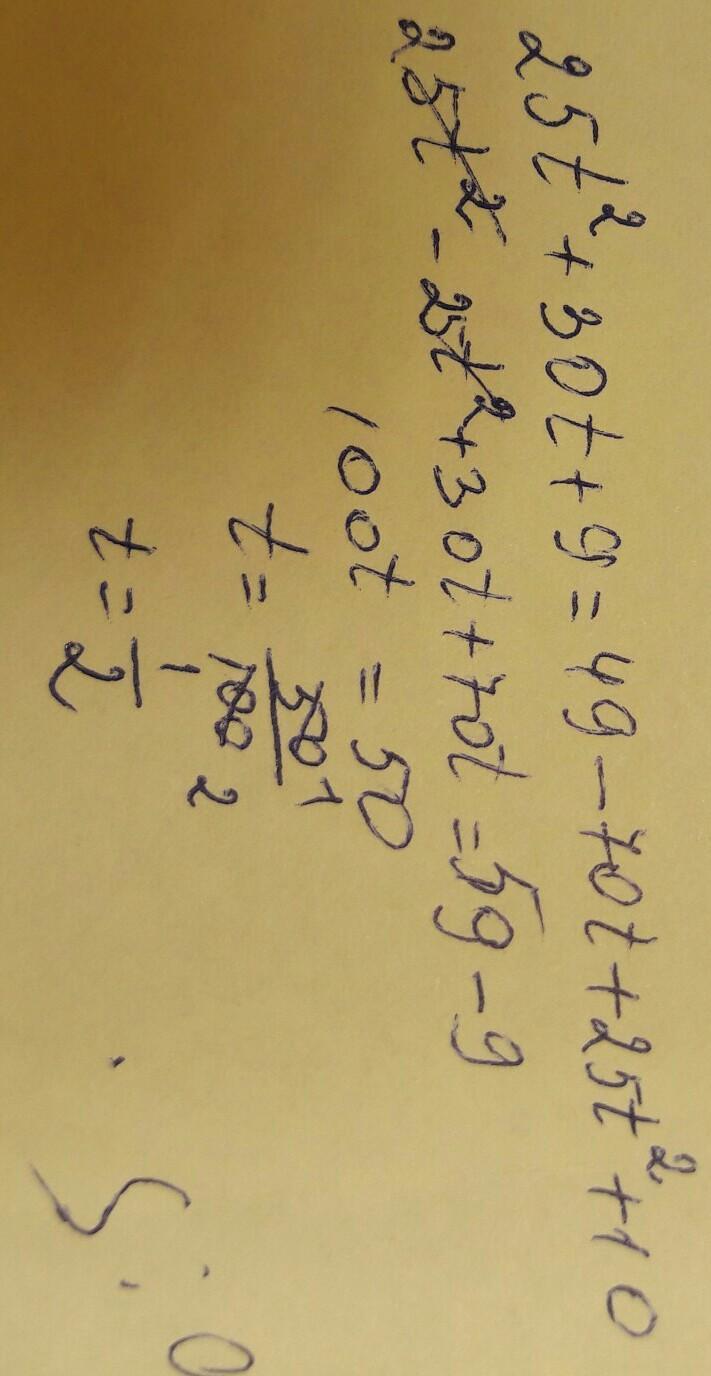 25t² + 30t + 9 = 49 - 70t + 25t² + 10
25t² - 25t² + 30t + 70t = 59 - 9
100t = 50
t = 50/100 1/2
t = 1/2